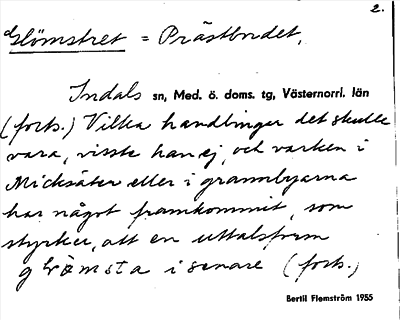 2.
Glömstret = Prästbordet,
Indals sn, Med. ö. doms. tg, Västernorrl. län
(forts.) Vilka handlingar det skulle
vara, visste han ej, och varken i
Micksäter eller i grannbyarna
har något framkommit, som
styrker, att en uttalsform
glömsta i senare (forts.)
Bertil Flemström 1955